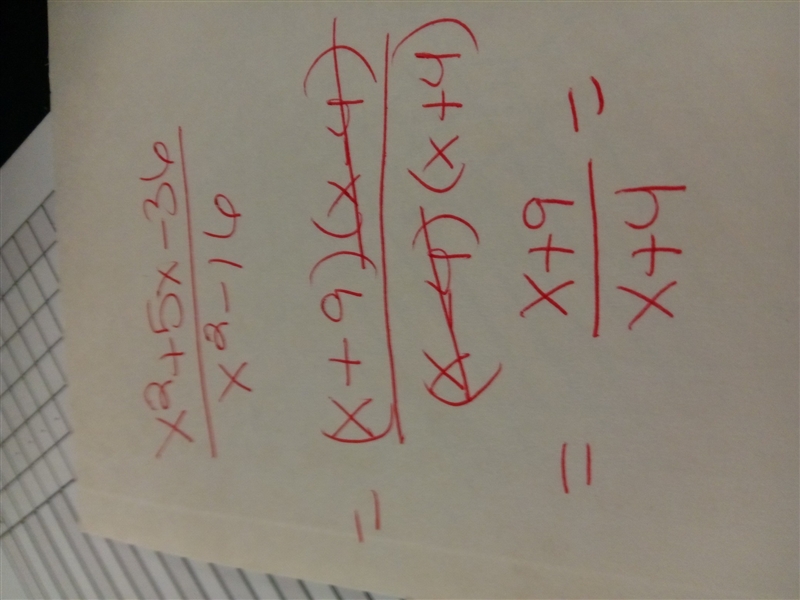 x²+5x-36
x²-16
= (x+9)(x-4)
(x-4)(x+4)
= x+9 =
x+4